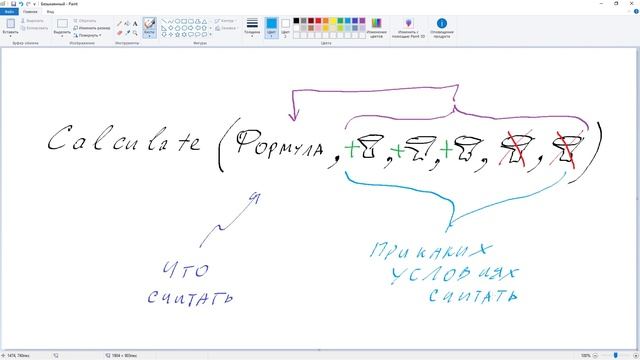 Безымянный - Paint
Файл Главная Вид
Вставить
Вырезать
Копировать
Выделить
Обрезать
Изменить размер
Повернуть
Кисти
Контур
Заливка
Толщина
Цвет 1
Цвет 2
Изменение цветов
Изменить с помощью Paint 3D
Оповещения продукта
Буфер обмена Изображение Инструменты Фигуры Цвета
Calculate (Формула, + , + , + , , )
что
считать
при каких
условиях
считать
100%